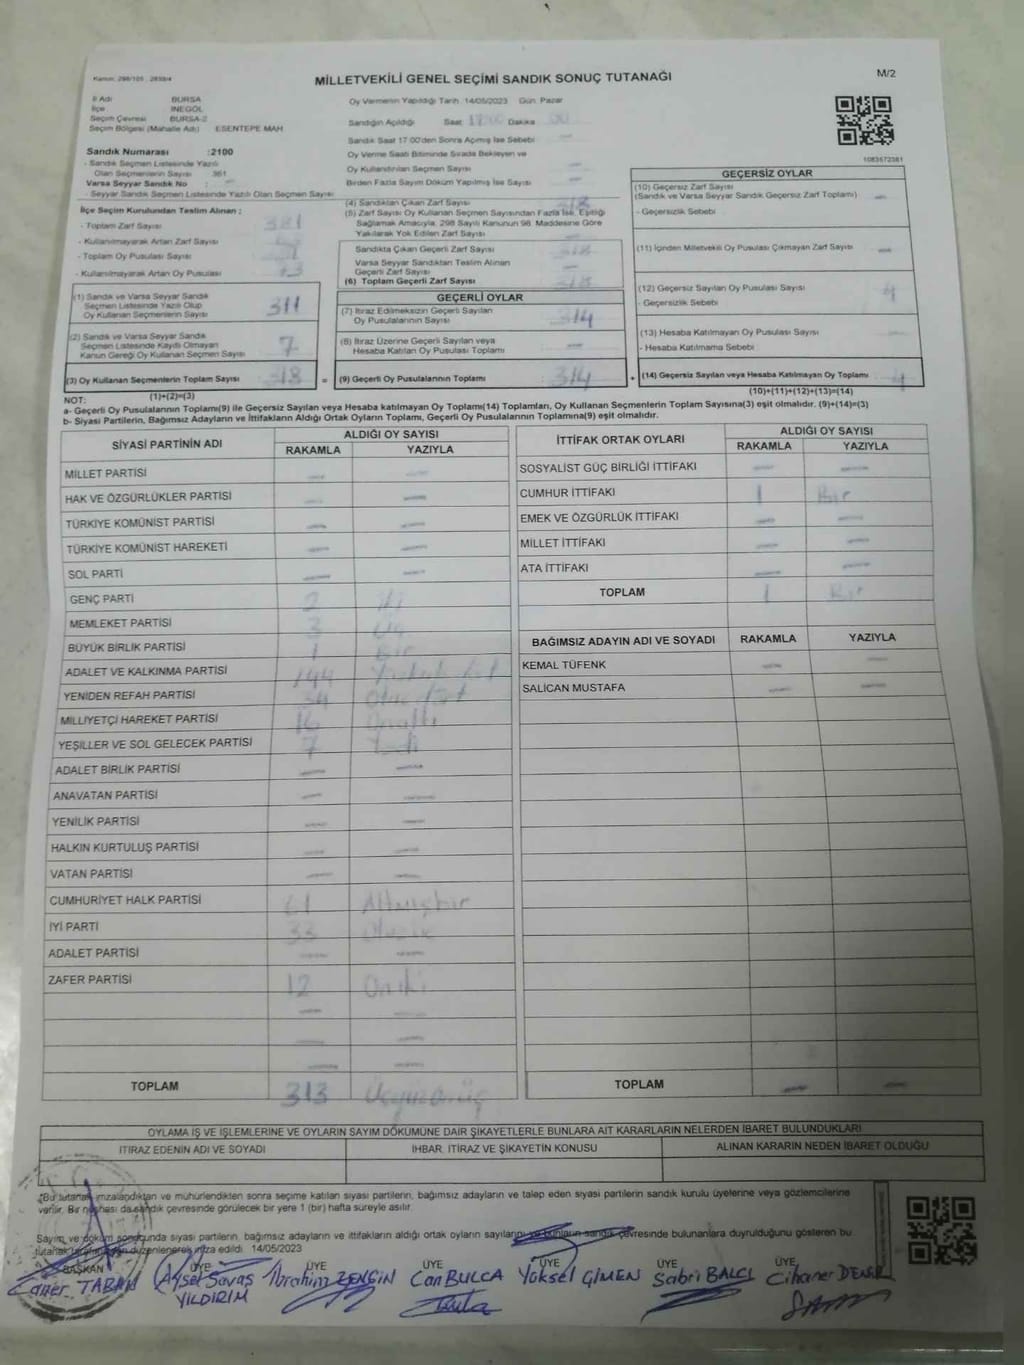 Kanun: 298/105 , 2839/4
MİLLETVEKİLİ GENEL SEÇİMİ SANDIK SONUÇ TUTANAĞI
M/2
İl Adı BURSA
İlçe İNEGÖL
Seçim Çevresi BURSA-2
Seçim Bölgesi (Mahalle Adı) ESENTEPE MAH
Oy Vermenin Yapıldığı Tarih: 14/05/2023 Gün: Pazar
Sandığın Açıldığı Saat Dakika
Sandık Saat 17:00'den Sonra Açılmış İse Sebebi —
Oy Verme Saati Bitiminde Sırada Bekleyen ve
Oy Kullandırılan Seçmen Sayısı —
Birden Fazla Sayım Döküm Yapılmış İse Sayısı —
1083572381
Sandık Numarası :2100
- Sandık Seçmen Listesinde Yazılı
Olan Seçmenlerin Sayısı 361
Varsa Seyyar Sandık No : -
- Seyyar Sandık Seçmen Listesinde Yazılı Olan Seçmen Sayısı
İlçe Seçim Kurulundan Teslim Alınan :
- Toplam Zarf Sayısı 381
- Kullanılmayarak Artan Zarf Sayısı
- Toplam Oy Pusulası Sayısı
- Kullanılmayarak Artan Oy Pusulası
(1) Sandık ve Varsa Seyyar Sandık
Seçmen Listesinde Yazılı Olup
Oy Kullanan Seçmenlerin Sayısı 311
(2) Sandık ve Varsa Seyyar Sandık
Seçmen Listesinde Kayıtlı Olmayan
Kanun Gereği Oy Kullanan Seçmen Sayısı 7
(3) Oy Kullanan Seçmenlerin Toplam Sayısı 318
(1)+(2)=(3)
(4) Sandıktan Çıkan Zarf Sayısı 318
(5) Zarf Sayısı Oy Kullanan Seçmen Sayısından Fazla İse, Eşitliği
Sağlamak Amacıyla, 298 Sayılı Kanunun 98. Maddesine Göre
Yakılarak Yok Edilen Zarf Sayısı —
Sandıkta Çıkan Geçerli Zarf Sayısı 318
Varsa Seyyar Sandıktan Teslim Alınan
Geçerli Zarf Sayısı —
(6) Toplam Geçerli Zarf Sayısı 318
GEÇERLİ OYLAR
(7) İtiraz Edilmeksizin Geçerli Sayılan
Oy Pusulalarının Sayısı 314
(8) İtiraz Üzerine Geçerli Sayılan veya
Hesaba Katılan Oy Pusulası Toplamı —
= (9) Geçerli Oy Pusulalarının Toplamı 314
GEÇERSİZ OYLAR
(10) Geçersiz Zarf Sayısı
(Sandık ve Varsa Seyyar Sandık Geçersiz Zarf Toplamı) —
- Geçersizlik Sebebi
(11) İçinden Milletvekili Oy Pusulası Çıkmayan Zarf Sayısı —
(12) Geçersiz Sayılan Oy Pusulası Sayısı 4
- Geçersizlik Sebebi
(13) Hesaba Katılmayan Oy Pusulası Sayısı
- Hesaba Katılmama Sebebi
+ (14) Geçersiz Sayılan veya Hesaba Katılmayan Oy Toplamı 4
(10)+(11)+(12)+(13)=(14)
NOT:
a- Geçerli Oy Pusulalarının Toplamı(9) ile Geçersiz Sayılan veya Hesaba katılmayan Oy Toplamı(14) Toplamları, Oy Kullanan Seçmenlerin Toplam Sayısına(3) eşit olmalıdır. (9)+(14)=(3)
b- Siyasi Partilerin, Bağımsız Adayların ve İttifakların Aldığı Ortak Oyların Toplamı, Geçerli Oy Pusulalarının Toplamına(9) eşit olmalıdır.
SİYASİ PARTİNİN ADI ALDIĞI OY SAYISI
RAKAMLA YAZIYLA
MİLLET PARTİSİ — —
HAK VE ÖZGÜRLÜKLER PARTİSİ — —
TÜRKİYE KOMÜNİST PARTİSİ — —
TÜRKİYE KOMÜNİST HAREKETİ — —
SOL PARTİ — —
GENÇ PARTİ 2 iki
MEMLEKET PARTİSİ 3 Üç
BÜYÜK BİRLİK PARTİSİ 1 Bir
ADALET VE KALKINMA PARTİSİ 144
YENİDEN REFAH PARTİSİ 34 Otuzdört
MİLLİYETÇİ HAREKET PARTİSİ 16 Onaltı
YEŞİLLER VE SOL GELECEK PARTİSİ 7 Yedi
ADALET BİRLİK PARTİSİ — —
ANAVATAN PARTİSİ — —
YENİLİK PARTİSİ — —
HALKIN KURTULUŞ PARTİSİ — —
VATAN PARTİSİ — —
CUMHURİYET HALK PARTİSİ 61 Altmışbir
İYİ PARTİ 33 Otuzüç
ADALET PARTİSİ — —
ZAFER PARTİSİ 12 Oniki
TOPLAM 313 Üçyüzonüç
İTTİFAK ORTAK OYLARI ALDIĞI OY SAYISI
RAKAMLA YAZIYLA
SOSYALİST GÜÇ BİRLİĞİ İTTİFAKI — —
CUMHUR İTTİFAKI 1 Bir
EMEK VE ÖZGÜRLÜK İTTİFAKI — —
MİLLET İTTİFAKI — —
ATA İTTİFAKI — —
TOPLAM 1 Bir
BAĞIMSIZ ADAYIN ADI VE SOYADI RAKAMLA YAZIYLA
KEMAL TÜFENK — —
SALİCAN MUSTAFA — —
TOPLAM — —
OYLAMA İŞ VE İŞLEMLERİNE VE OYLARIN SAYIM DÖKÜMÜNE DAİR ŞİKAYETLERLE BUNLARA AİT KARARLARIN NELERDEN İBARET BULUNDUKLARI
İTİRAZ EDENİN ADI VE SOYADI İHBAR, İTİRAZ VE ŞİKAYETİN KONUSU ALINAN KARARIN NEDEN İBARET OLDUĞU
*Bu tutanak imzalandıktan ve mühürlendikten sonra seçime katılan siyasi partilerin, bağımsız adayların ve talep eden siyasi partilerin sandık kurulu üyelerine veya gözlemcilerine
verilir. Bir nüshası da sandık çevresinde görülecek bir yere 1 (bir) hafta süreyle asılır.
Sayım ve döküm sonucunda siyasi partilerin, bağımsız adayların ve ittifakların aldığı ortak oyların sayılarını ve bunların sandık çevresinde bulunanlara duyrulduğunu gösteren bu
tutanak tarafımızdan düzenlenerek imza edildi. 14/05/2023
BAŞKAN ÜYE ÜYE ÜYE ÜYE ÜYE ÜYE
Caner TABAN Aysel Savaş YILDIRIM İbrahim ZENGİN Can BULCA Yüksel ÇİMEN Sabri BALCI Cihaner